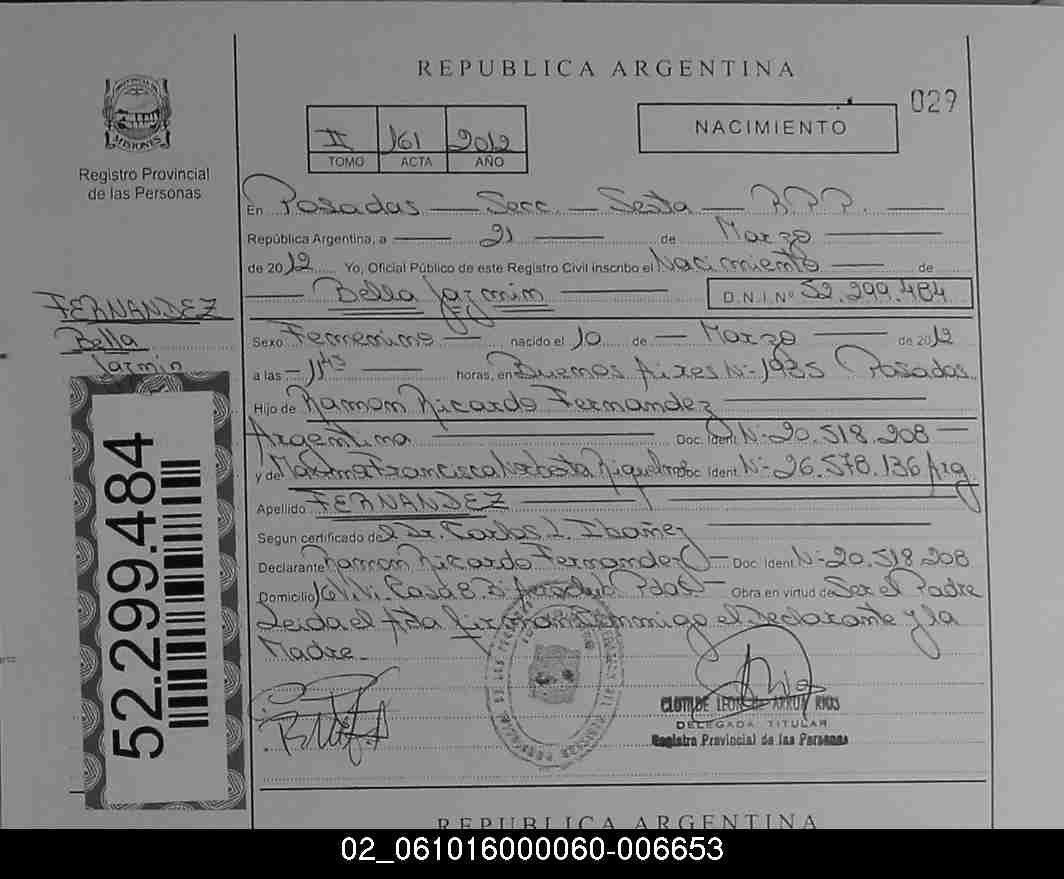 REPUBLICA ARGENTINA
029
MISIONES
Registro Provincial
de las Personas
II 161 2012
TOMO ACTA AÑO
NACIMIENTO
En Posadas — Secc. — Sexta — R.P.P. —
República Argentina, a — 21 — de Marzo —
de 2012 Yo, Oficial Público de este Registro Civil inscribo el Nacimiento — de
— Bella Jazmin — D.N.I. Nº 52.299.484
FERNANDEZ
Bella
Jazmin
Sexo Femenino — nacido el 10 de — Marzo — de 2012
a las — 11 hs — horas, en Buenos Aires Nº 1935 Posadas.
Hijo de Ramon Ricardo Fernandez —
Argentino — Doc. Ident. Nº 20.518.208 —
y de Francisca Riquelme Doc. Ident. Nº 26.578.136 Arg.
Apellido FERNANDEZ —
Segun certificado del Dr. Carlos Ibañez —
Declarante Ramon Ricardo Fernandez — Doc. Ident. Nº 20.518.208
Domicilio Casa 8 — Obra en virtud de Ser el Padre
Leida el Acta firman conmigo el Declarante y la
Madre —
CLOTILDE RIOS
DELEGADA TITULAR
Registro Provincial de las Personas
52.299.484
REPUBLICA ARGENTINA
02_061016000060-006653